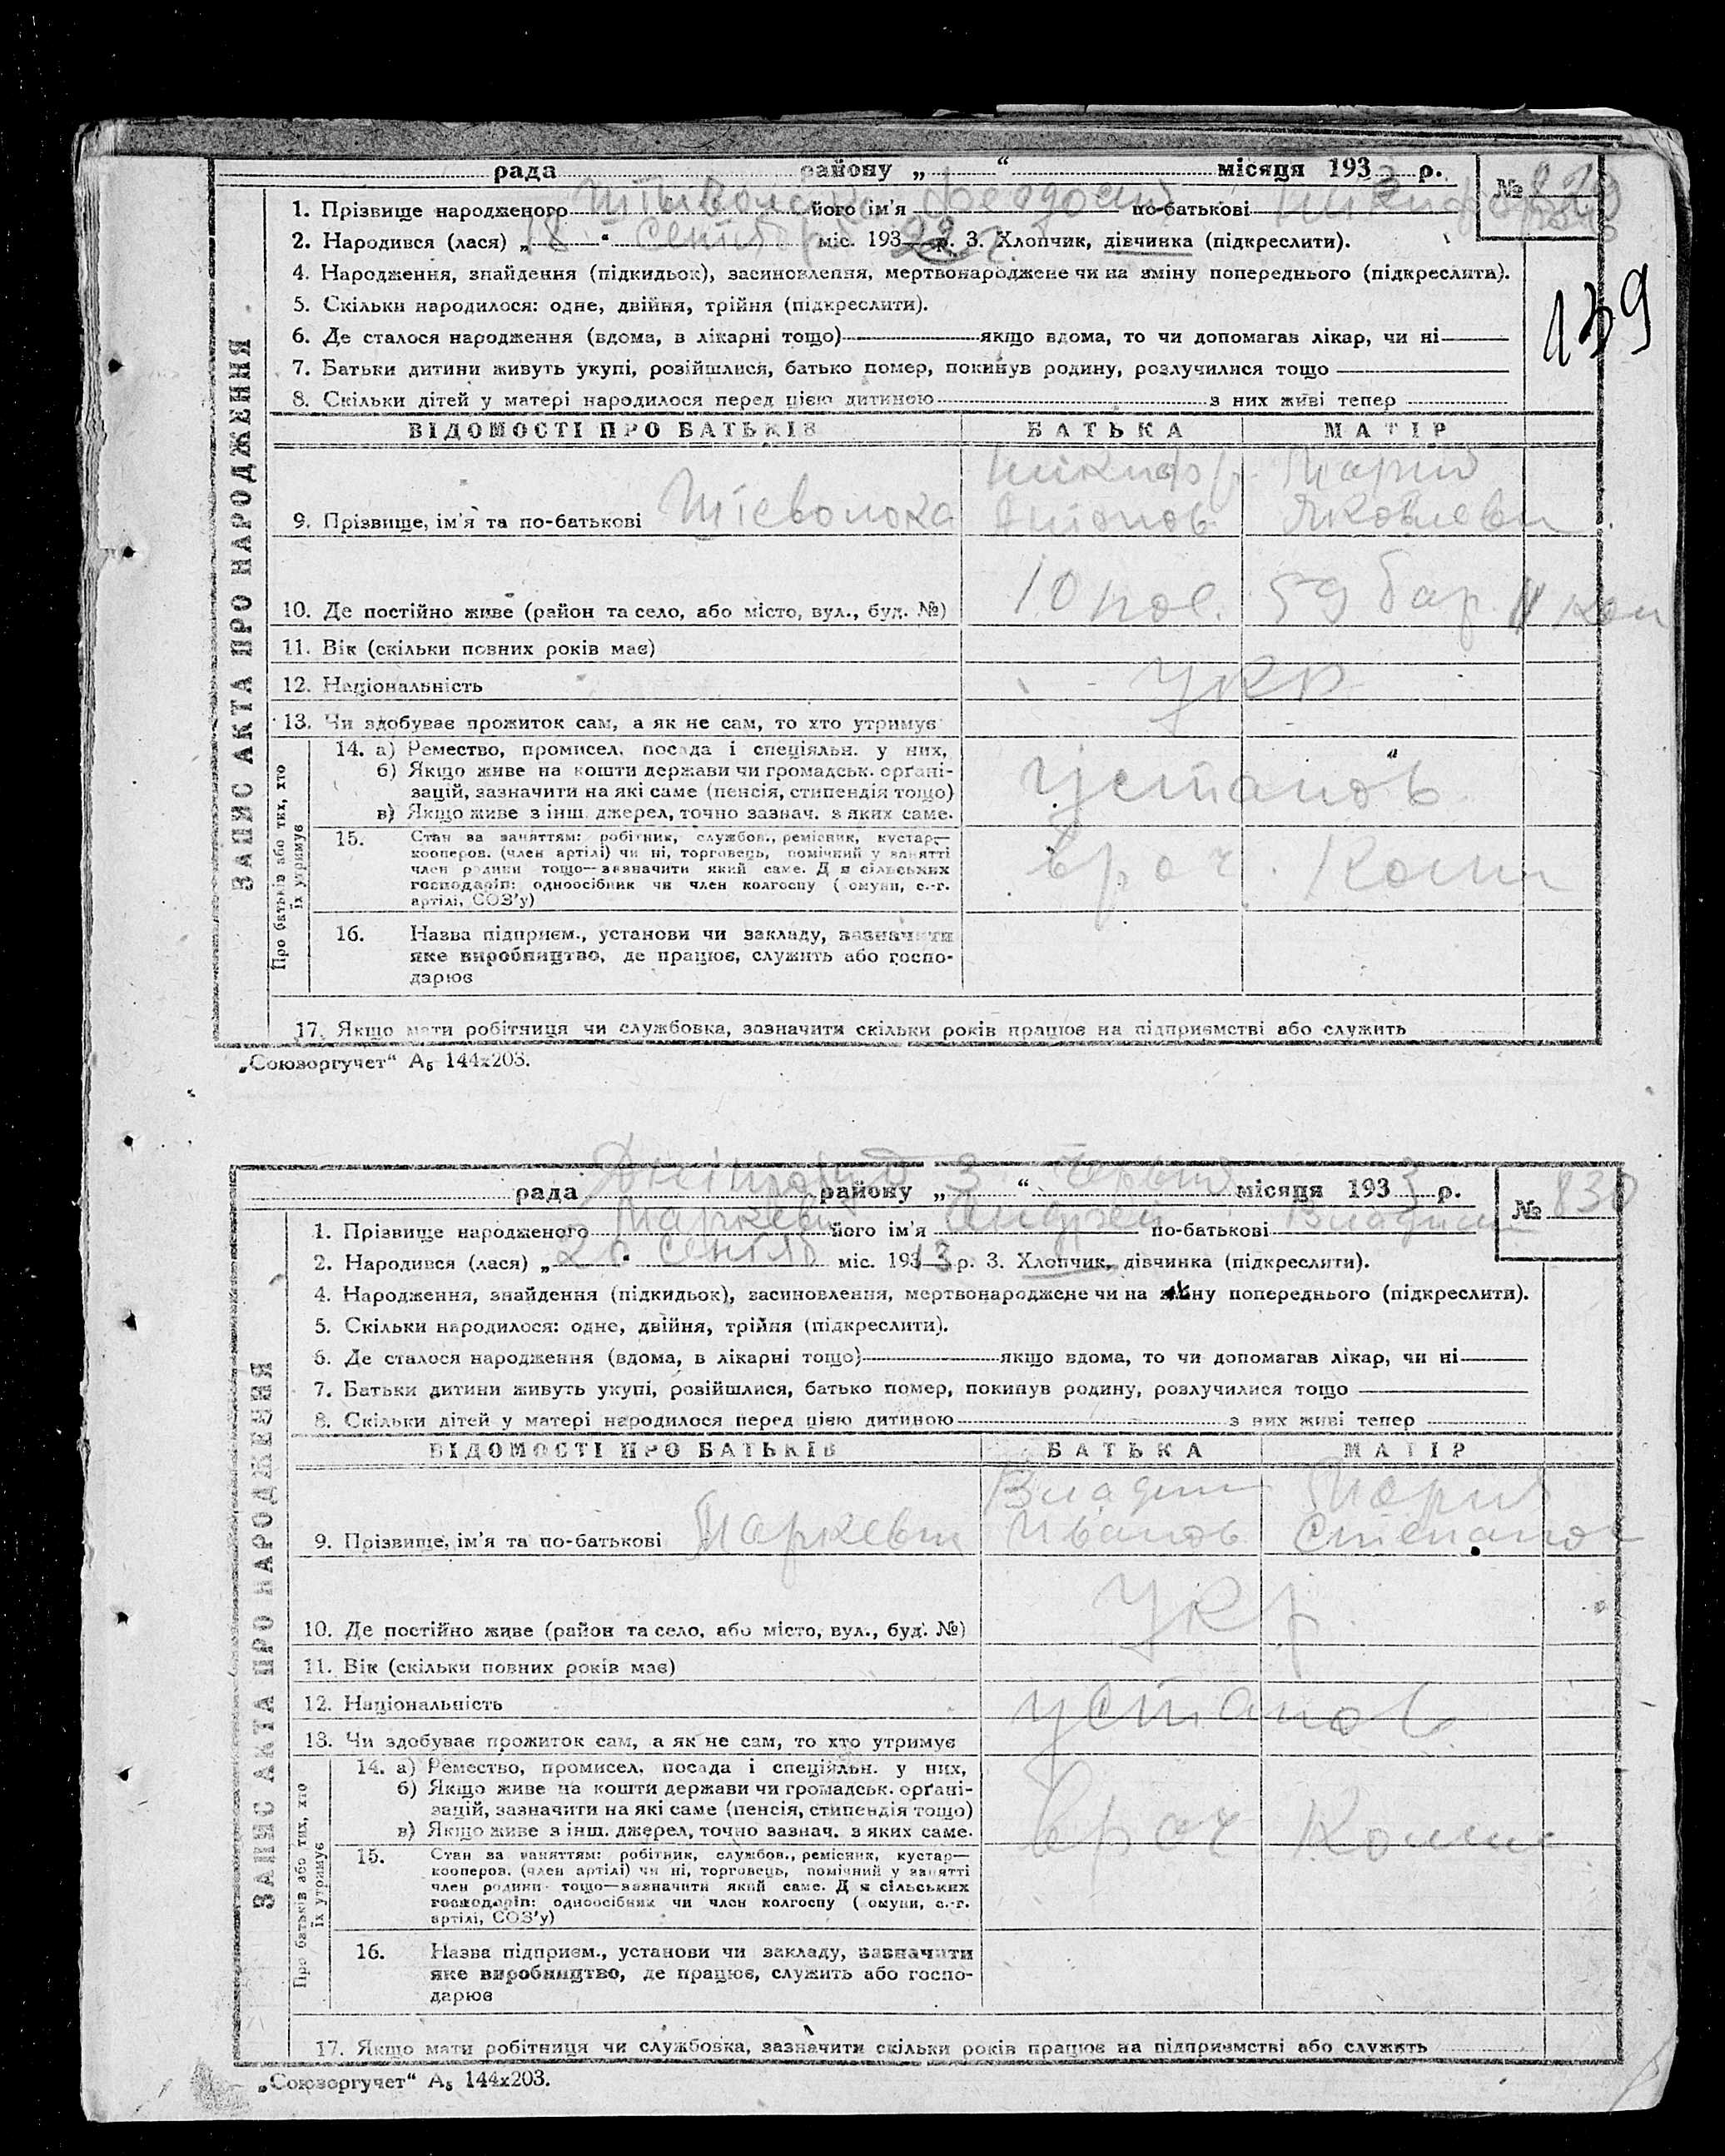 рада району „ “ місяця 1933 р. № 829
1. Прізвище народженого його ім'я Феодосий по-батькові
2. Народився (лася) „18“ сентяб міс. 1932 р. 3. Хлопчик, дівчинка (підкреслити).
139
4. Народження, знайдення (підкидьок), засиновлення, мертвонароджене чи на зміну попереднього (підкреслити).
5. Скільки народилося: одне, двійня, трійня (підкреслити).
6. Де сталося народження (вдома, в лікарні тощо) якщо вдома, то чи допомагав лікар, чи ні
7. Батьки дитини живуть укупі, розійшлися, батько помер, покинув родину, розлучилися тощо
8. Скільки дітей у матері народилося перед цією дитиною з них живі тепер
ВІДОМОСТІ ПРО БАТЬКІВ БАТЬКА МАТІР
Никифор Мария
9. Прізвище, ім'я та по-батькові Антонов Яковлевн
10. Де постійно живе (район та село, або місто, вул., буд. №) 10 пос. 59 бар. 11 ком
11. Вік (скільки повних років має)
12. Національність укр
13. Чи здобуває прожиток сам, а як не сам, то хто утримує
14. а) Ремество, промисел, посада і спеціяльн. у них,
б) Якщо живе на кошти держави чи громадськ. орґані-
зацій, зазначити на які саме (пенсія, стипендія тощо) установ
в) Якщо живе з інш. джерел, точно зазнач. з яких саме.
15. Стан за заняттям: робітник, службов., ремісник, кустар—
кооперов. (член артілі) чи ні, торговець, помічний у занятті врач. Комн
член родини тощо—зазначити який саме. Для сільських
господарів: одноосібник чи член колгоспу (комуни, с.-г.
артілі, СОЗ'у)
16. Назва підприєм., установи чи закладу, зазначити
яке виробництво, де працює, служить або госпо-
дарює
17. Якщо мати робітниця чи службовка, зазначити скільки років працює на підприємстві або служить
ЗАПИС АКТА ПРО НАРОДЖЕННЯ
Про батьків або тих, хто
їх утримує
„Союзоргучет“ А₅ 144х203.
рада Дніпробуд району „3“ червня місяця 1933 р. № 830
1. Прізвище народженого Маркевич його ім'я Андрей по-батькові Владим
2. Народився (лася) „20“ сентяб міс. 1913 р. 3. Хлопчик, дівчинка (підкреслити).
4. Народження, знайдення (підкидьок), засиновлення, мертвонароджене чи на зміну попереднього (підкреслити).
5. Скільки народилося: одне, двійня, трійня (підкреслити).
6. Де сталося народження (вдома, в лікарні тощо) якщо вдома, то чи допомагав лікар, чи ні
7. Батьки дитини живуть укупі, розійшлися, батько помер, покинув родину, розлучилися тощо
8. Скільки дітей у матері народилося перед цією дитиною з них живі тепер
ВІДОМОСТІ ПРО БАТЬКІВ БАТЬКА МАТІР
Владим Мария
9. Прізвище, ім'я та по-батькові Маркевич Иванов Степанов
укр.
10. Де постійно живе (район та село, або місто, вул., буд. №)
11. Вік (скільки повних років має)
12. Національність установ
13. Чи здобуває прожиток сам, а як не сам, то хто утримує
14. а) Ремество, промисел, посада і спеціяльн. у них,
б) Якщо живе на кошти держави чи громадськ. орґані-
зацій, зазначити на які саме (пенсія, стипендія тощо)
в) Якщо живе з інш. джерел, точно зазнач. з яких саме. врач Комн
15. Стан за заняттям: робітник, службов., ремісник, кустар—
кооперов. (член артілі) чи ні, торговець, помічний у занятті
член родини тощо—зазначити який саме. Для сільських
господарів: одноосібник чи член колгоспу (комуни, с.-г.
артілі, СОЗ'у)
16. Назва підприєм., установи чи закладу, зазначити
яке виробництво, де працює, служить або госпо-
дарює
17. Якщо мати робітниця чи службовка, зазначити скільки років працює на підприємстві або служить
ЗАПИС АКТА ПРО НАРОДЖЕННЯ
Про батьків або тих, хто
їх утримує
„Союзоргучет“ А₅ 144х203.